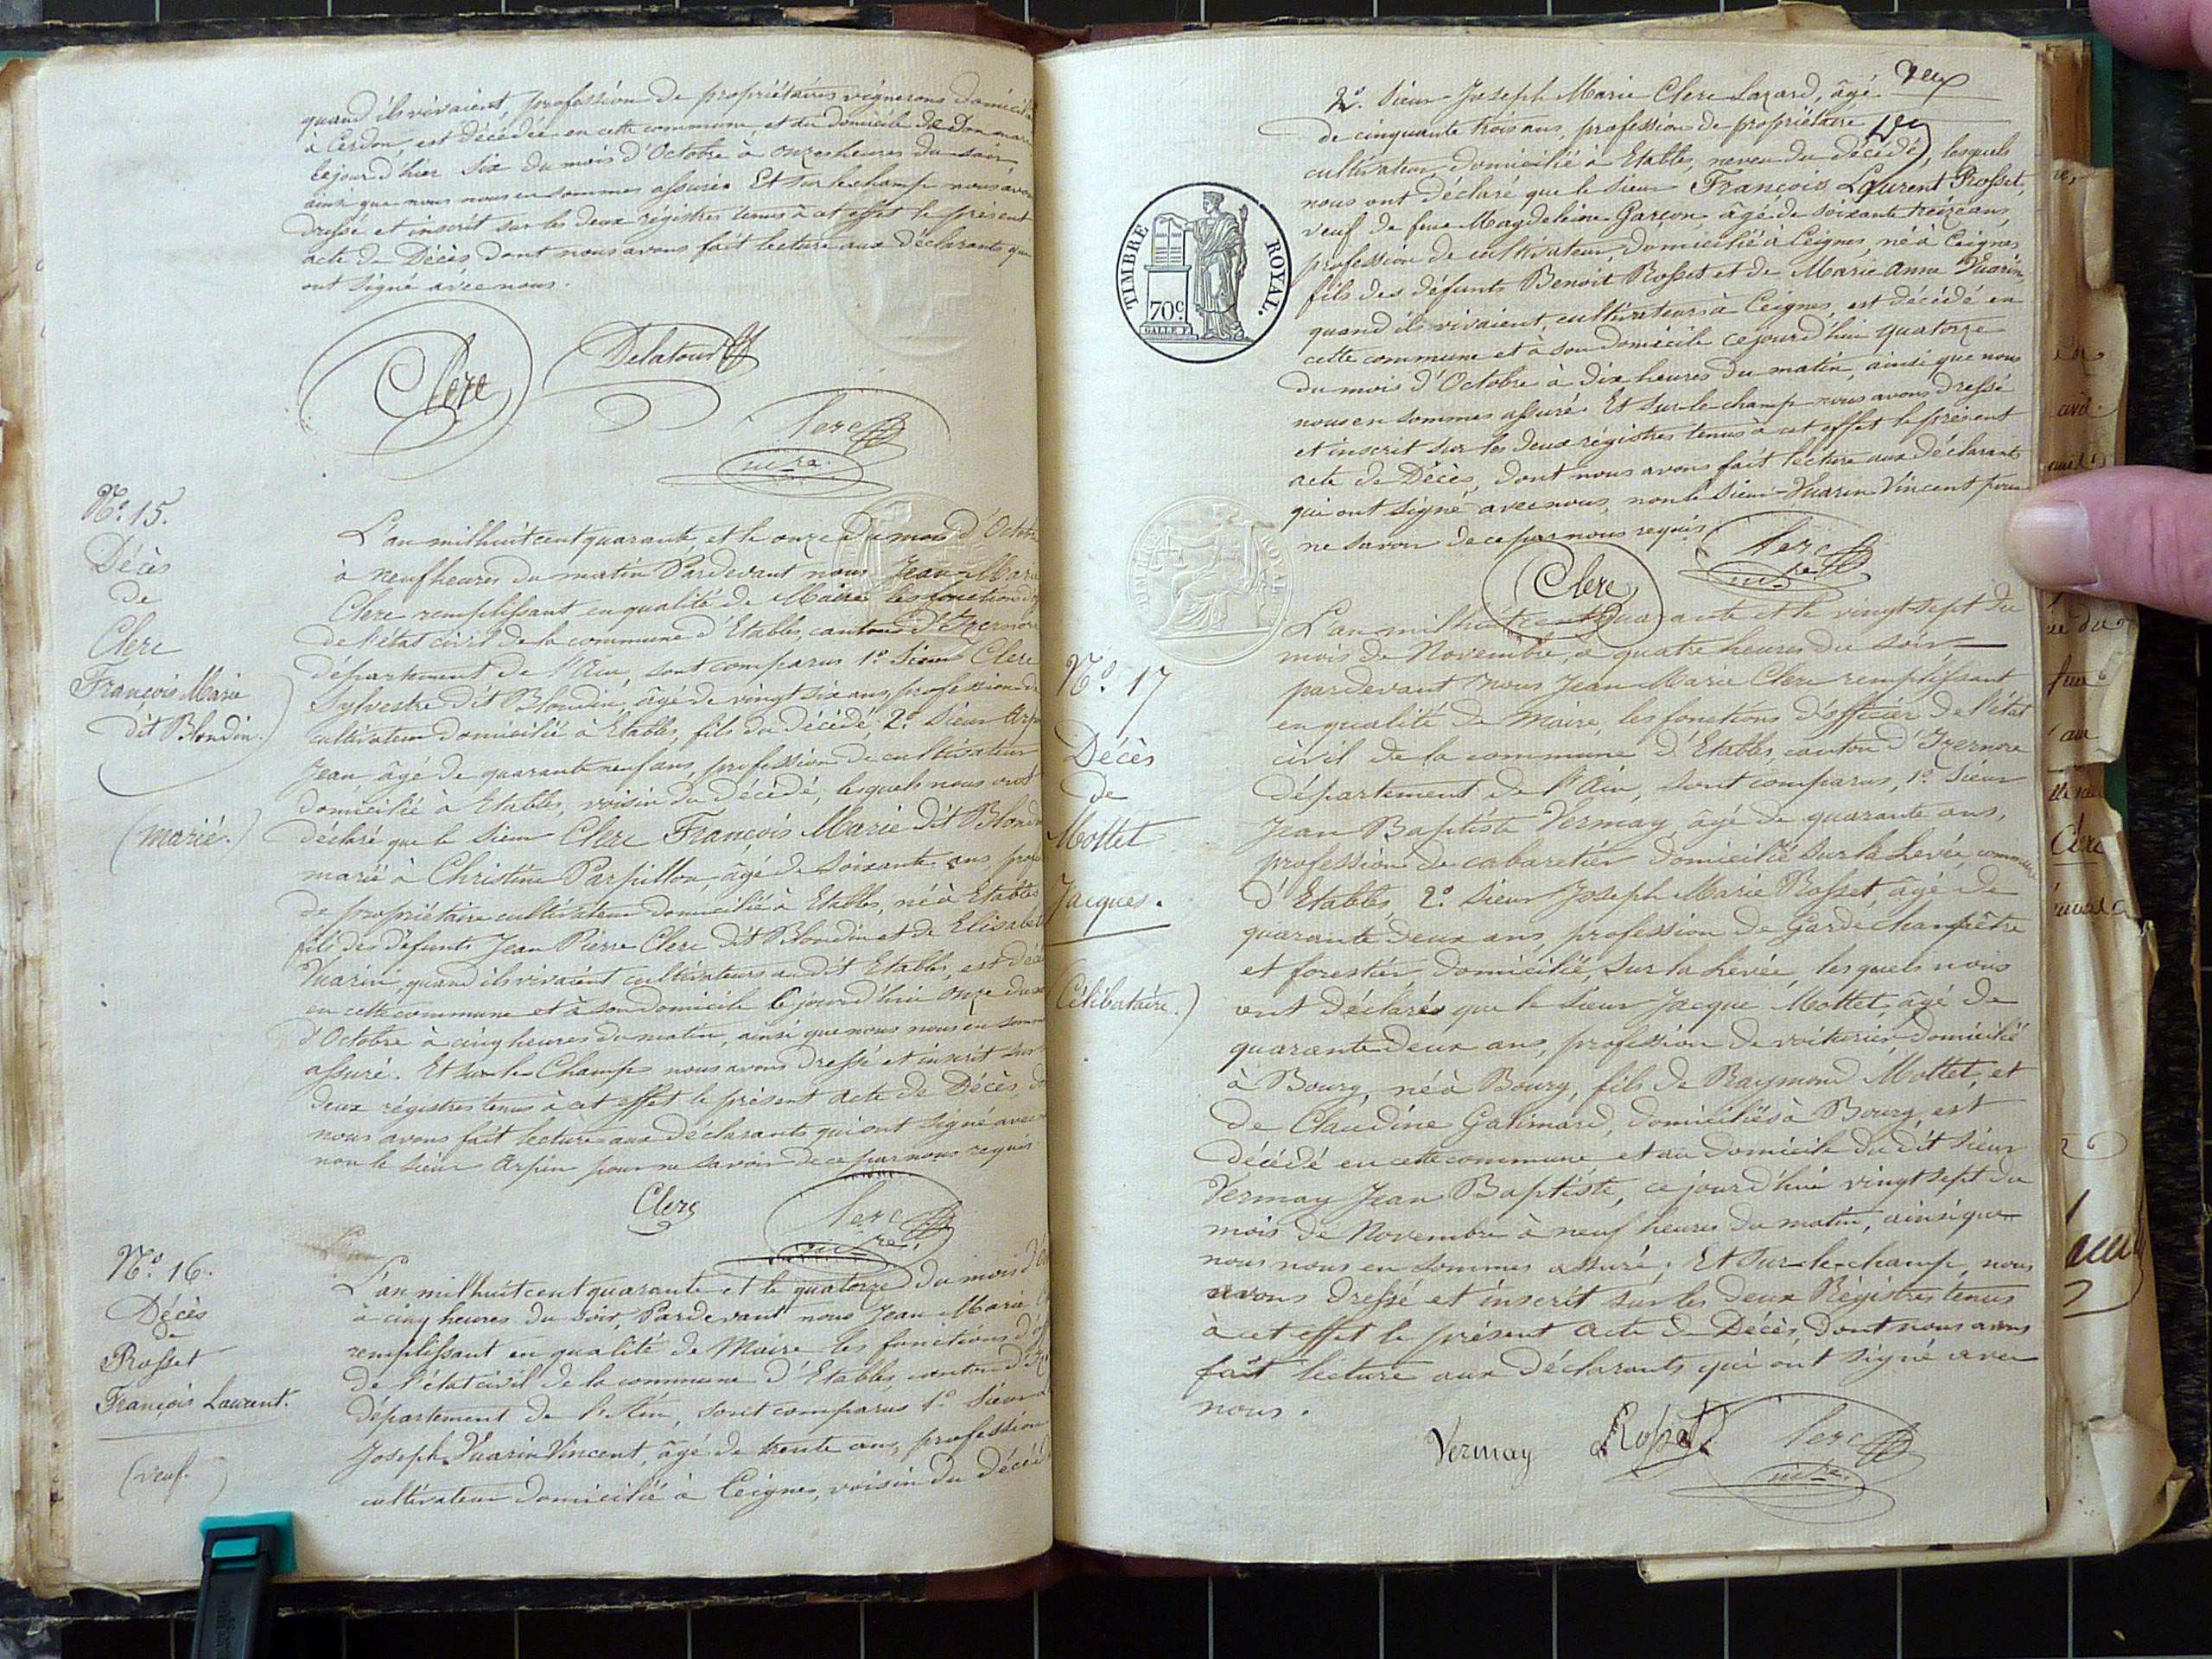 quand ils vivaient, profession de propriétaires vignerons domicil
à Cerdon, est décédée en cette commune, et au domicile de son mari
le jour d'hier six du mois d'Octobre à onze heures du soir
ainsi que nous nous en sommes assuré. Et sur le champ nous avons
dressé et inscrit sur les deux régistres tenus à cet effet le présent
acte de Décès dont nous avons fait lecture aux déclarants qui
ont signé avec nous.
Clerc
Delatour
Clerc
N.º 15.
Décès
de
Clerc
François Marie
dit Blondin.
(marié.)
L'an mil huit cent quarante et le onze du mois d'Octobre
à neuf heures du matin Pardevant nous Jean-Marie
Clerc remplissant en qualité de Maire les fonctions d'
de l'état civil de la commune d'Etables, canton d'Izernore
département de l'Ain, sont comparus 1º. Sieur Clerc
Sylvestre dit Blondin, âgé de vingt six ans, profession de
cultivateur domicilié à Etables, fils du décédé, 2.º Sieur Arpin
Jean âgé de quarante neuf ans, profession de cultivateur
domicilié à Etables, voisin du décédé, lesquels nous ont
déclaré que le Sieur Clerc François Marie dit Blondin
marié à Christine Parpillon, âgé de soixante ans prof
de propriétaire cultivateur domicilié à Etables, né à Etables
fils des défunts Jean Pierre Clerc dit Blondin et de Elisabeth
Vuarin, quand ils vivaient cultivateurs audit Etables, est décé
en cette commune et à son domicile ce jourd'hui onze du
d'Octobre à cinq heures du matin, ainsi que nous nous en somm
assuré. Et sur le Champ nous avons dressé et inscrit sur
deux régistres tenus à cet effet le présent acte de Décès, d
nous avons fait lecture aux déclarants qui ont signé avec
non le sieur Arpin pour ne savoir de ce par nous requis
Clerc
Clerc
N.º 16.
Décès
de
Rosset
François Laurent.
(veuf.)
L'an mil huit cent quarante et le quatorze du mois d'
à cinq heures du soir, Pardevant nous Jean Marie
remplissant en qualité de Maire les fonctions d'
de l'état civil de la commune d'Etables, canton d'Iz
département de l'Ain, sont comparus 1º. Sieur
Joseph Vuarin Vincent, âgé de trente ans, profession
cultivateur domicilié à Ceignes, voisin du décédé
2º. Sieur Joseph Marie Clerc Lazard, âgé
de cinquante trois ans, profession de propriétaire
cultivateur, domicilié à Etables, neveu du décédé, lesquels
nous ont déclaré que le Sieur François Laurent Rosset,
veuf de feue Magdeleine Garçon, âgé de soixante treize ans,
profession de cultivateur, domicilié à Ceignes, né à Ceignes
fils des défunts Benoit Rosset et de Marie Anne Vuarin,
quand ils vivaient, cultivateurs à Ceignes, est décédé en
cette commune et à son domicile ce jourd'hui quatorze
du mois d'Octobre à dix heures du matin, ainsi que nous
nous en sommes assuré. Et sur-le-champ nous avons dressé
et inscrit sur les deux régistres tenus à cet effet le présent
acte de Décès, dont nous avons fait lecture aux déclarants
qui ont signé avec nous, non le sieur Vuarin Vincent pour
ne savoir de ce par nous requis
Clerc
Clerc
TIMBRE ROYAL.
70 c.
N.º 17
Décès
de
Mottet
Jacques.
(Célibataire.)
L'an mil huit cent quarante et le vingt-sept du
mois de Novembre, à quatre heures du soir
pardevant nous Jean Marie Clerc remplissant
en qualité de Maire, les fonctions d'officier de l'état
civil de la commune d'Etables, canton d'Izernore
département de l'Ain, sont comparus, 1º. Sieur
Jean Baptiste Vermay, âgé de quarante ans,
profession de cabaretier domicilié sur la Levée, commune
d'Etables, 2.º Sieur Joseph Marie Rosset, âgé de
quarante deux ans, profession de Garde champêtre
et forestier domicilié, sur la Levée, lesquels nous
ont déclarés que le Sieur Jacque Mottet, âgé de
quarante deux ans, profession de voiturier, domicilié
à Bourg, né à Bourg, fils de Raymond Mottet, et
de Claudine Galimard, domiciliés à Bourg, est
décédé en cette commune et au domicile du dit sieur
Vermay Jean Baptiste, ce jourd'hui vingt sept du
mois de Novembre à neuf heures du matin, ainsi que
nous nous en sommes assuré; Et sur-le-champ, nous
avons dressé et inscrit sur les deux Régistres tenus
à cet effet le présent acte de Décès, dont nous avons
fait lecture aux déclarants qui ont signé avec
nous.
Vermay
Rosset
Clerc